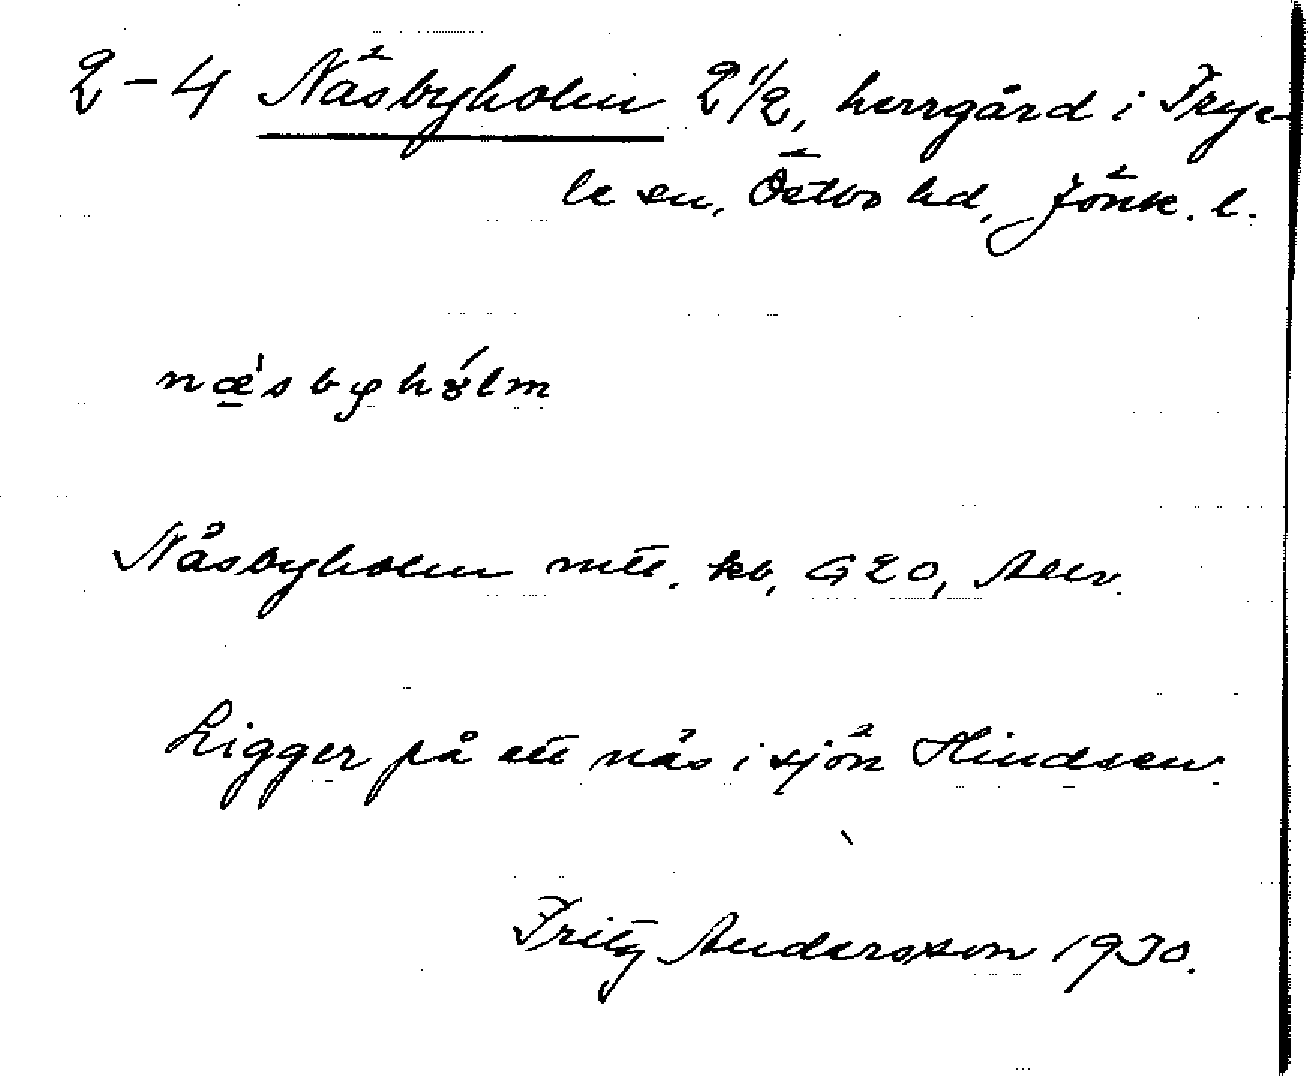 2-4 Näsbyholm 2 1/2, herrgård i Frye-
le sn, Östbo hd, Jönk. l.
næ̱'sbyhó̤lm
Näsbyholm mtl. kb, G20,
Ligger på ett näs i sjön Hindsen.
Fritz Andersson 1930.